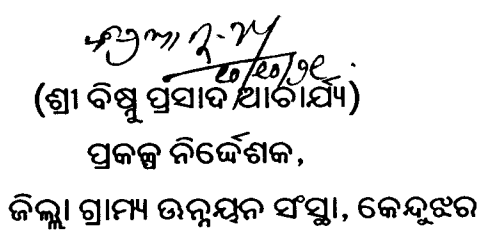 (ଶ୍ରୀ ବିଷ୍ଣୁ ପ୍ରସାଦ ଆଚାର୍ଯ୍ୟ)
ପ୍ରକଳ୍ପ ନିର୍ଦ୍ଦେଶକ,
ଜିଲ୍ଲା ଗ୍ରାମ୍ୟ ଉନ୍ନୟନ ସଂସ୍ଥା, କେନ୍ଦୁଝର